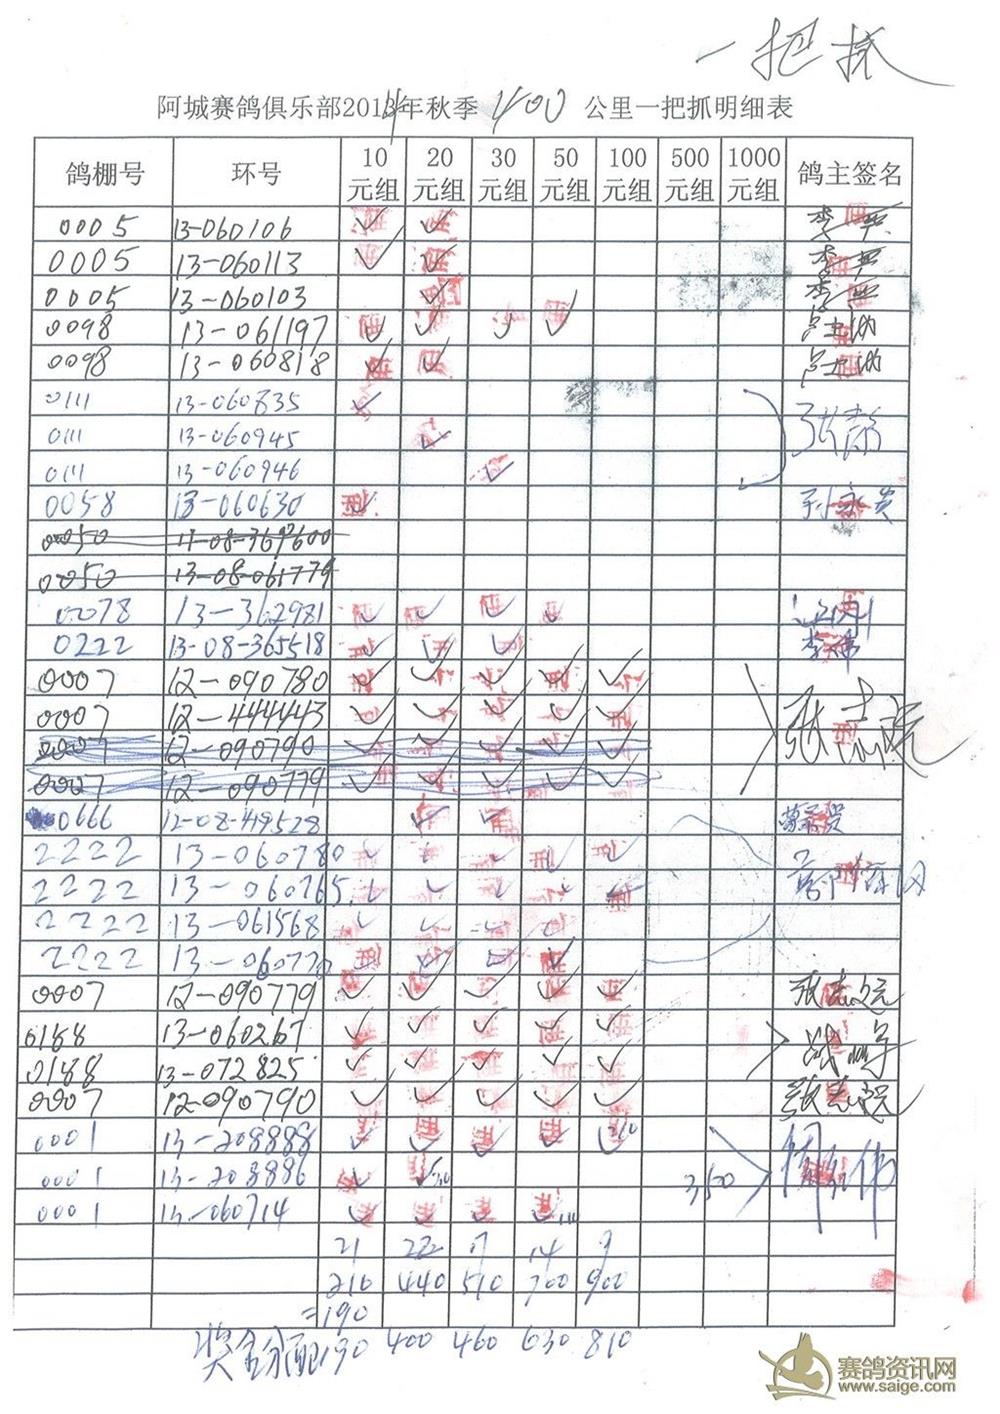 一把抓
阿城赛鸽俱乐部2014年秋季400公里一把抓明细表
鸽棚号 环号 10元组 20元组 30元组 50元组 100元组 500元组 1000元组 鸽主签名
0005 13-060106 ✓ ✓
0005 13-060113 ✓ ✓
0005 13-060103 ✓ ✓
0098 13-061197 ✓ ✓ ✓ ✓
0098 13-060818 ✓ ✓
0111 13-060835 ✓
0111 13-060945 ✓
0111 13-060946 ✓
0058 13-060630 ✓ 刘永贵
0050
0050 13-08-061779
0078 13-362981 ✓ ✓ ✓ ✓
0222 13-08-365518 ✓ ✓ ✓ 李伟
0007 12-090780 ✓ ✓ ✓ ✓ ✓
0007 12-444443 ✓ ✓ ✓ ✓ ✓ 张志院
0007 12-090790 ✓ ✓ ✓ ✓ ✓
0007 12-090779 ✓ ✓ ✓ ✓ ✓
0666 12-08-49528 ✓ ✓
2222 13-060780 ✓ ✓ ✓ ✓ ✓
2222 13-060765 ✓ ✓ ✓ ✓ ✓
2222 13-061568 ✓ ✓ ✓ ✓
2222 13-060770 ✓ ✓ ✓ ✓
0007 12-090779 ✓ ✓ ✓ ✓ ✓ 张志院
0188 13-060267 ✓ ✓ ✓ ✓ ✓
0188 13-072825 ✓ ✓ ✓ ✓ ✓
0007 12-090790 ✓ ✓ ✓ ✓ ✓ 张志院
0001 13-208888 ✓ ✓ ✓ ✓ ✓
0001 13-208886 ✓ ✓ 3,500
0001 13-060714 ✓ ✓ ✓ ✓
21 22 17 14 9
210 440 510 700 900
=190
奖金分配190 400 460 630 810
赛鸽资讯网
www.saige.com